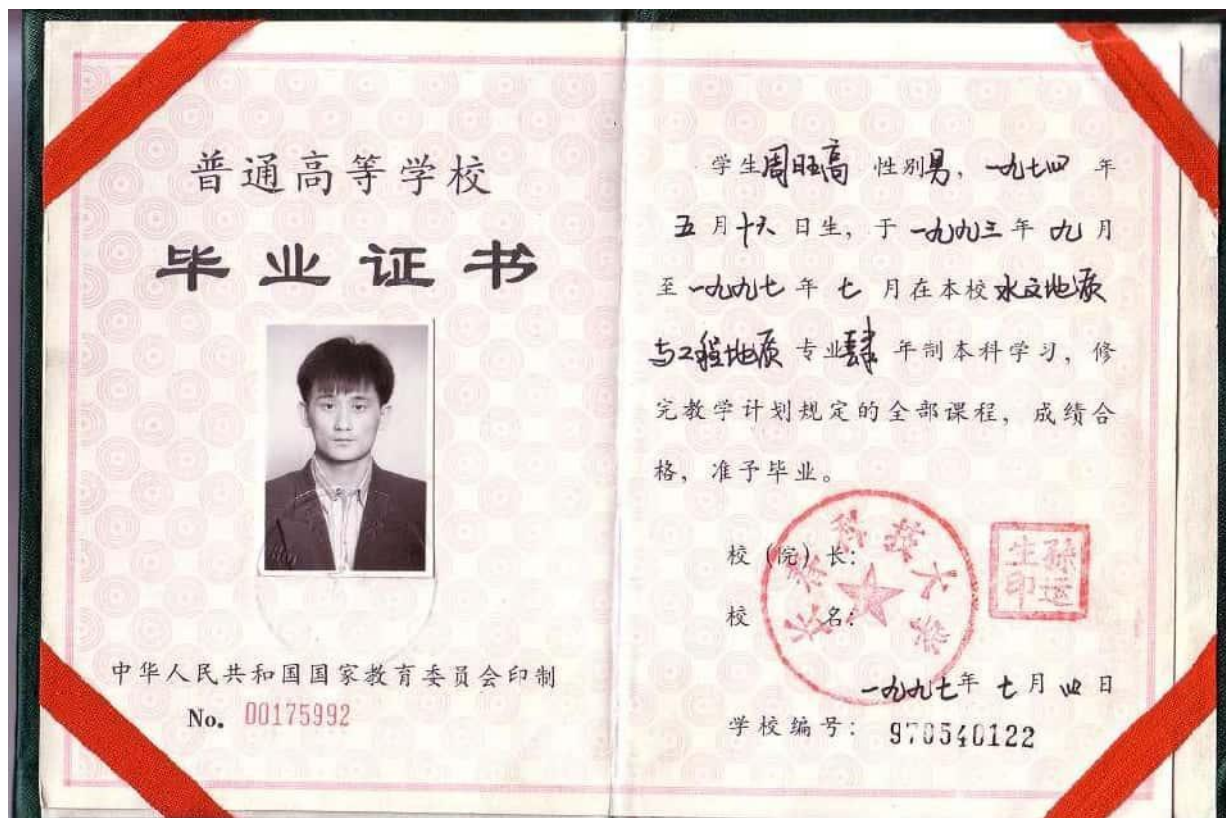 普通高等学校
毕业证书
中华人民共和国国家教育委员会印制
No. 00175992
学生周旺高 性别男，一九七四 年
五月十六日生，于一九九三年九月
至一九九七年 七 月在本校水文地质
与工程地质 专业肆 年制本科学习，修
完教学计划规定的全部课程，成绩合
格，准予毕业。
校（院）长：
孙运生印
校 名：
长春科技大学
一九九七年 七 月 四 日
学校编号： 970540122